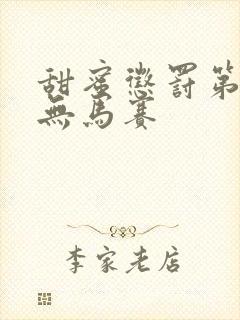 甜蜜懲罰第
無馬賽
李家老店